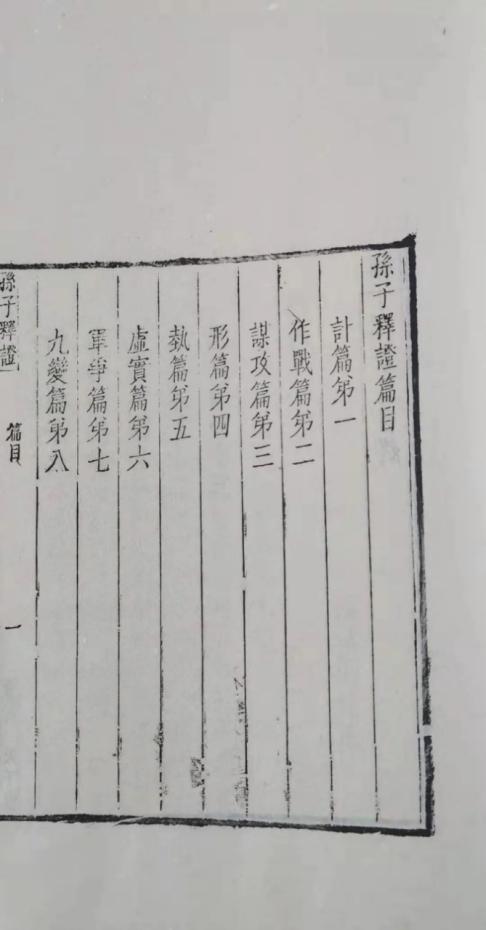 孫子釋證篇目
計篇第一
作戰篇第二
謀攻篇第三
形篇第四
埶篇第五
虛實篇第六
軍爭篇第七
九變篇第八
孫子釋證
篇目
一